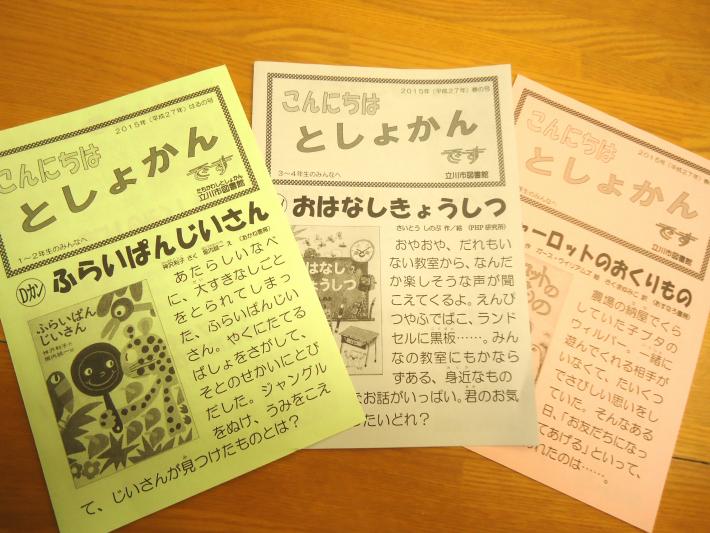 2015年（平成27年）はるの号
こんにちは
としょかん
です
1～2年生のみんなへ
たちかわしとしょかん
立川市図書館
Dカン
ふらいぱんじいさん
神沢利子 さく 堀内誠一 え （あかね書房）
ふらいぱん
じいさん
神沢利子・作
堀内誠一・画
あたらしいなべ
に、大すきなしごと
をとられてしまっ
た、ふらいぱんじい
さん。やくにたてる
ばしょをさがして、
そとのせかいにとび
だした。ジャングル
をぬけ、うみをこえ
て、じいさんが見つけたものとは？
2015年（平成27年）春の号
こんにちは
としょかん
です
3～4年生のみんなへ
立川市図書館
おはなしきょうしつ
さいとう しのぶ 作／絵 （PHP研究所）
おはなし
きょうしつ
おやおや、だれもい
ない教室から、なんだ
か楽しそうな声が聞
こえてくるよ。えんぴ
つやふでばこ、ランド
セルに黒板……。みん
なの教室にもかなら
ずある、身近なもの
なお話がいっぱい。君のお気
たいどれ？
2015年（平成27年）春
こんにちは
としょかん
です
年生のみんなへ
立川市図書館
ャーロットのおくりもの
作 ガース・ウイリアムズ 絵 さくまゆみこ 訳 （あすなろ書房）
農場の納屋でくら
していた子ブタの
ウィルバー。一緒に
遊んでくれる相手が
いなくて、たいくつ
でさびしい思いをし
ていた。そんなある
日、「お友だちになっ
てあげる」といって、
れたのは……。